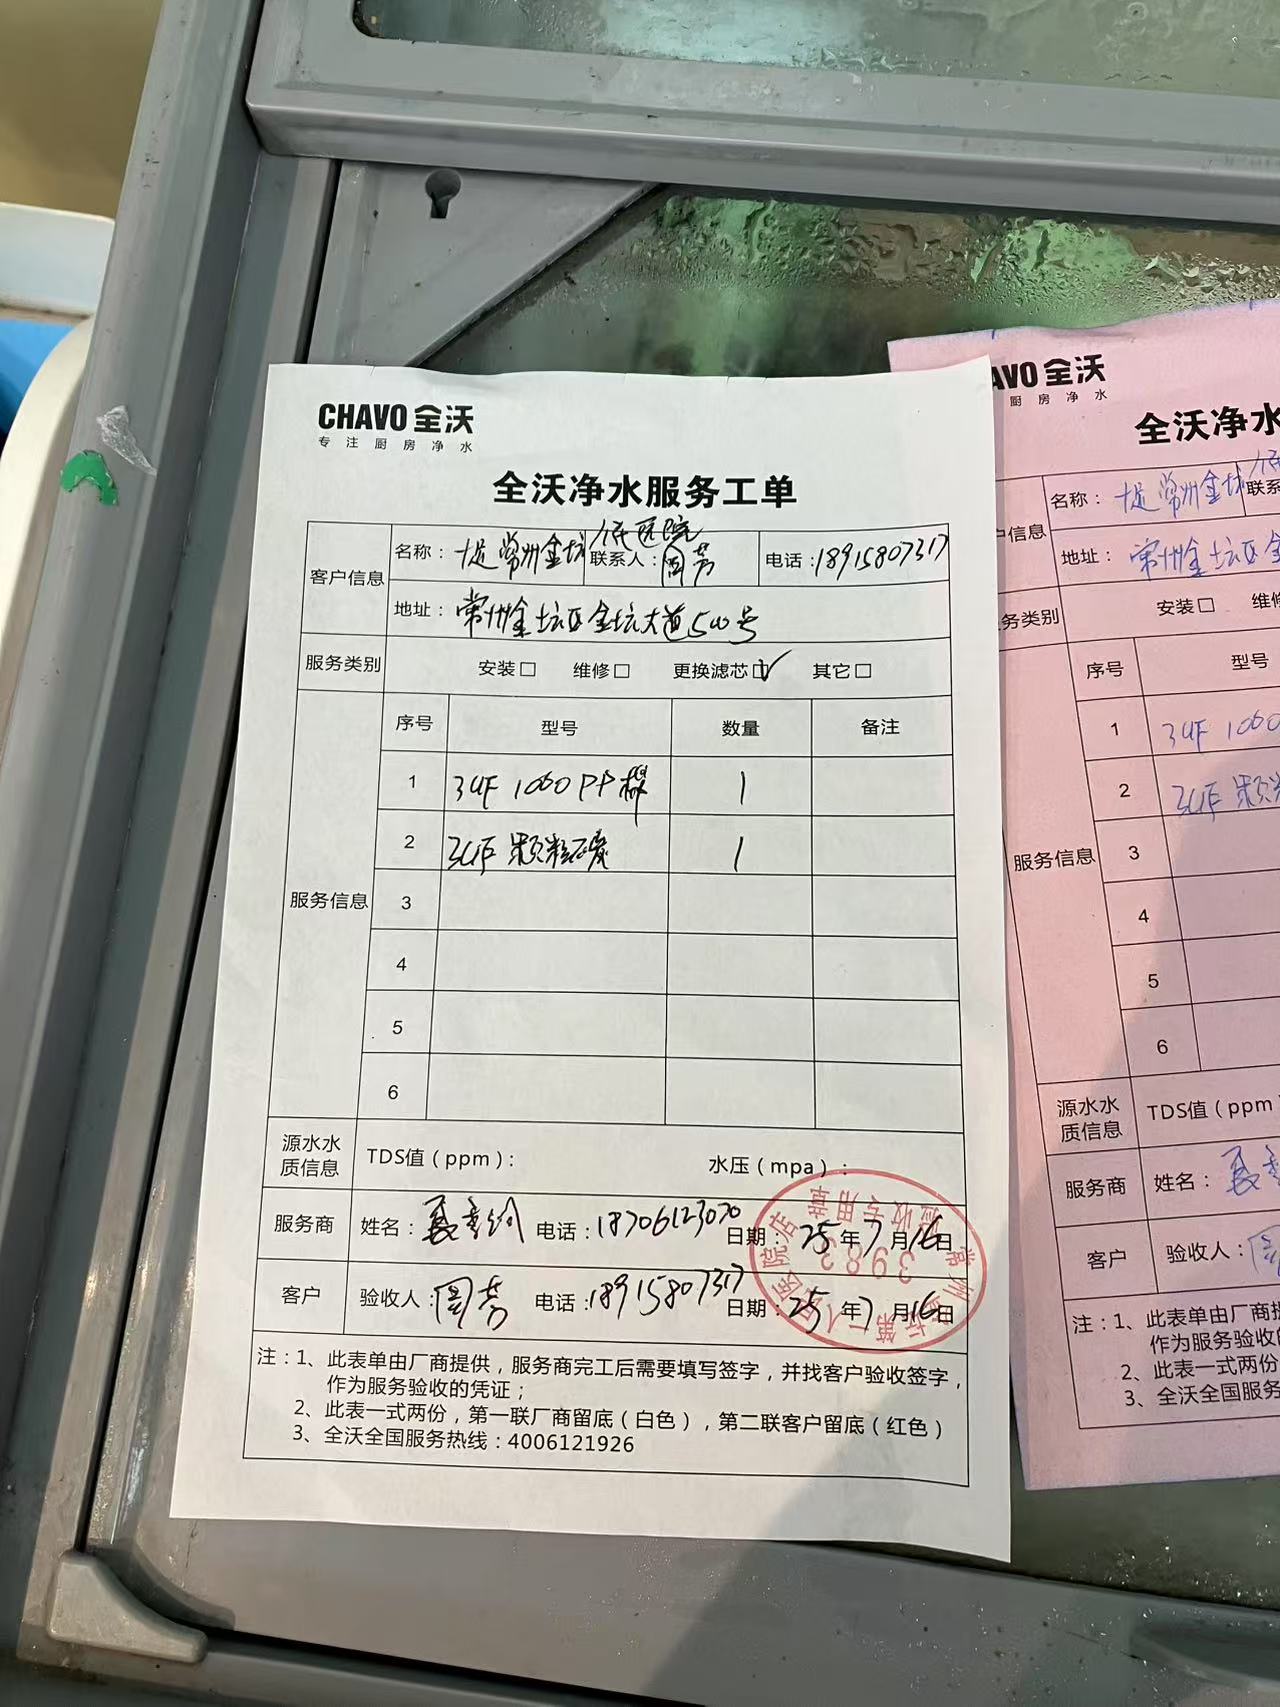 CHAVO 全沃
专注厨房净水
全沃净水服务工单
客户信息
名称： 常州金坛人民医院
联系人： 周芳
电话：18915807317
地址： 常州金坛区金坛大道500号
服务类别
安装□ 维修□ 更换滤芯☑ 其它□
服务信息
序号 型号 数量 备注
1 3UF 1060 PP棉 1
2 3UF 颗粒碳 1
3
4
5
6
源水水质信息
TDS值（ppm）： 水压（mpa）：
服务商 姓名： 电话：18706123070 日期：25年7月16日
客户 验收人：周芳 电话：18915807317 日期：25年7月16日
注：1、此表单由厂商提供，服务商完工后需要填写签字，并找客户验收签字，
作为服务验收的凭证；
2、此表一式两份，第一联厂商留底（白色），第二联客户留底（红色）
3、全沃全国服务热线：4006121926
验收专用章
3983
AVO 全沃
厨房净水
全沃净水
户信息
名称： 常州金坛
联系
地址： 常州金坛区金
务类别
安装□ 维
服务信息
序号 型号
1 3UF 1060
2 3UF 颗粒
3
4
5
6
源水水
质信息
TDS值（ppm
服务商 姓名：
客户 验收人：
注：1、此表单由厂商提
作为服务验收的
2、此表一式两份
3、全沃全国服务